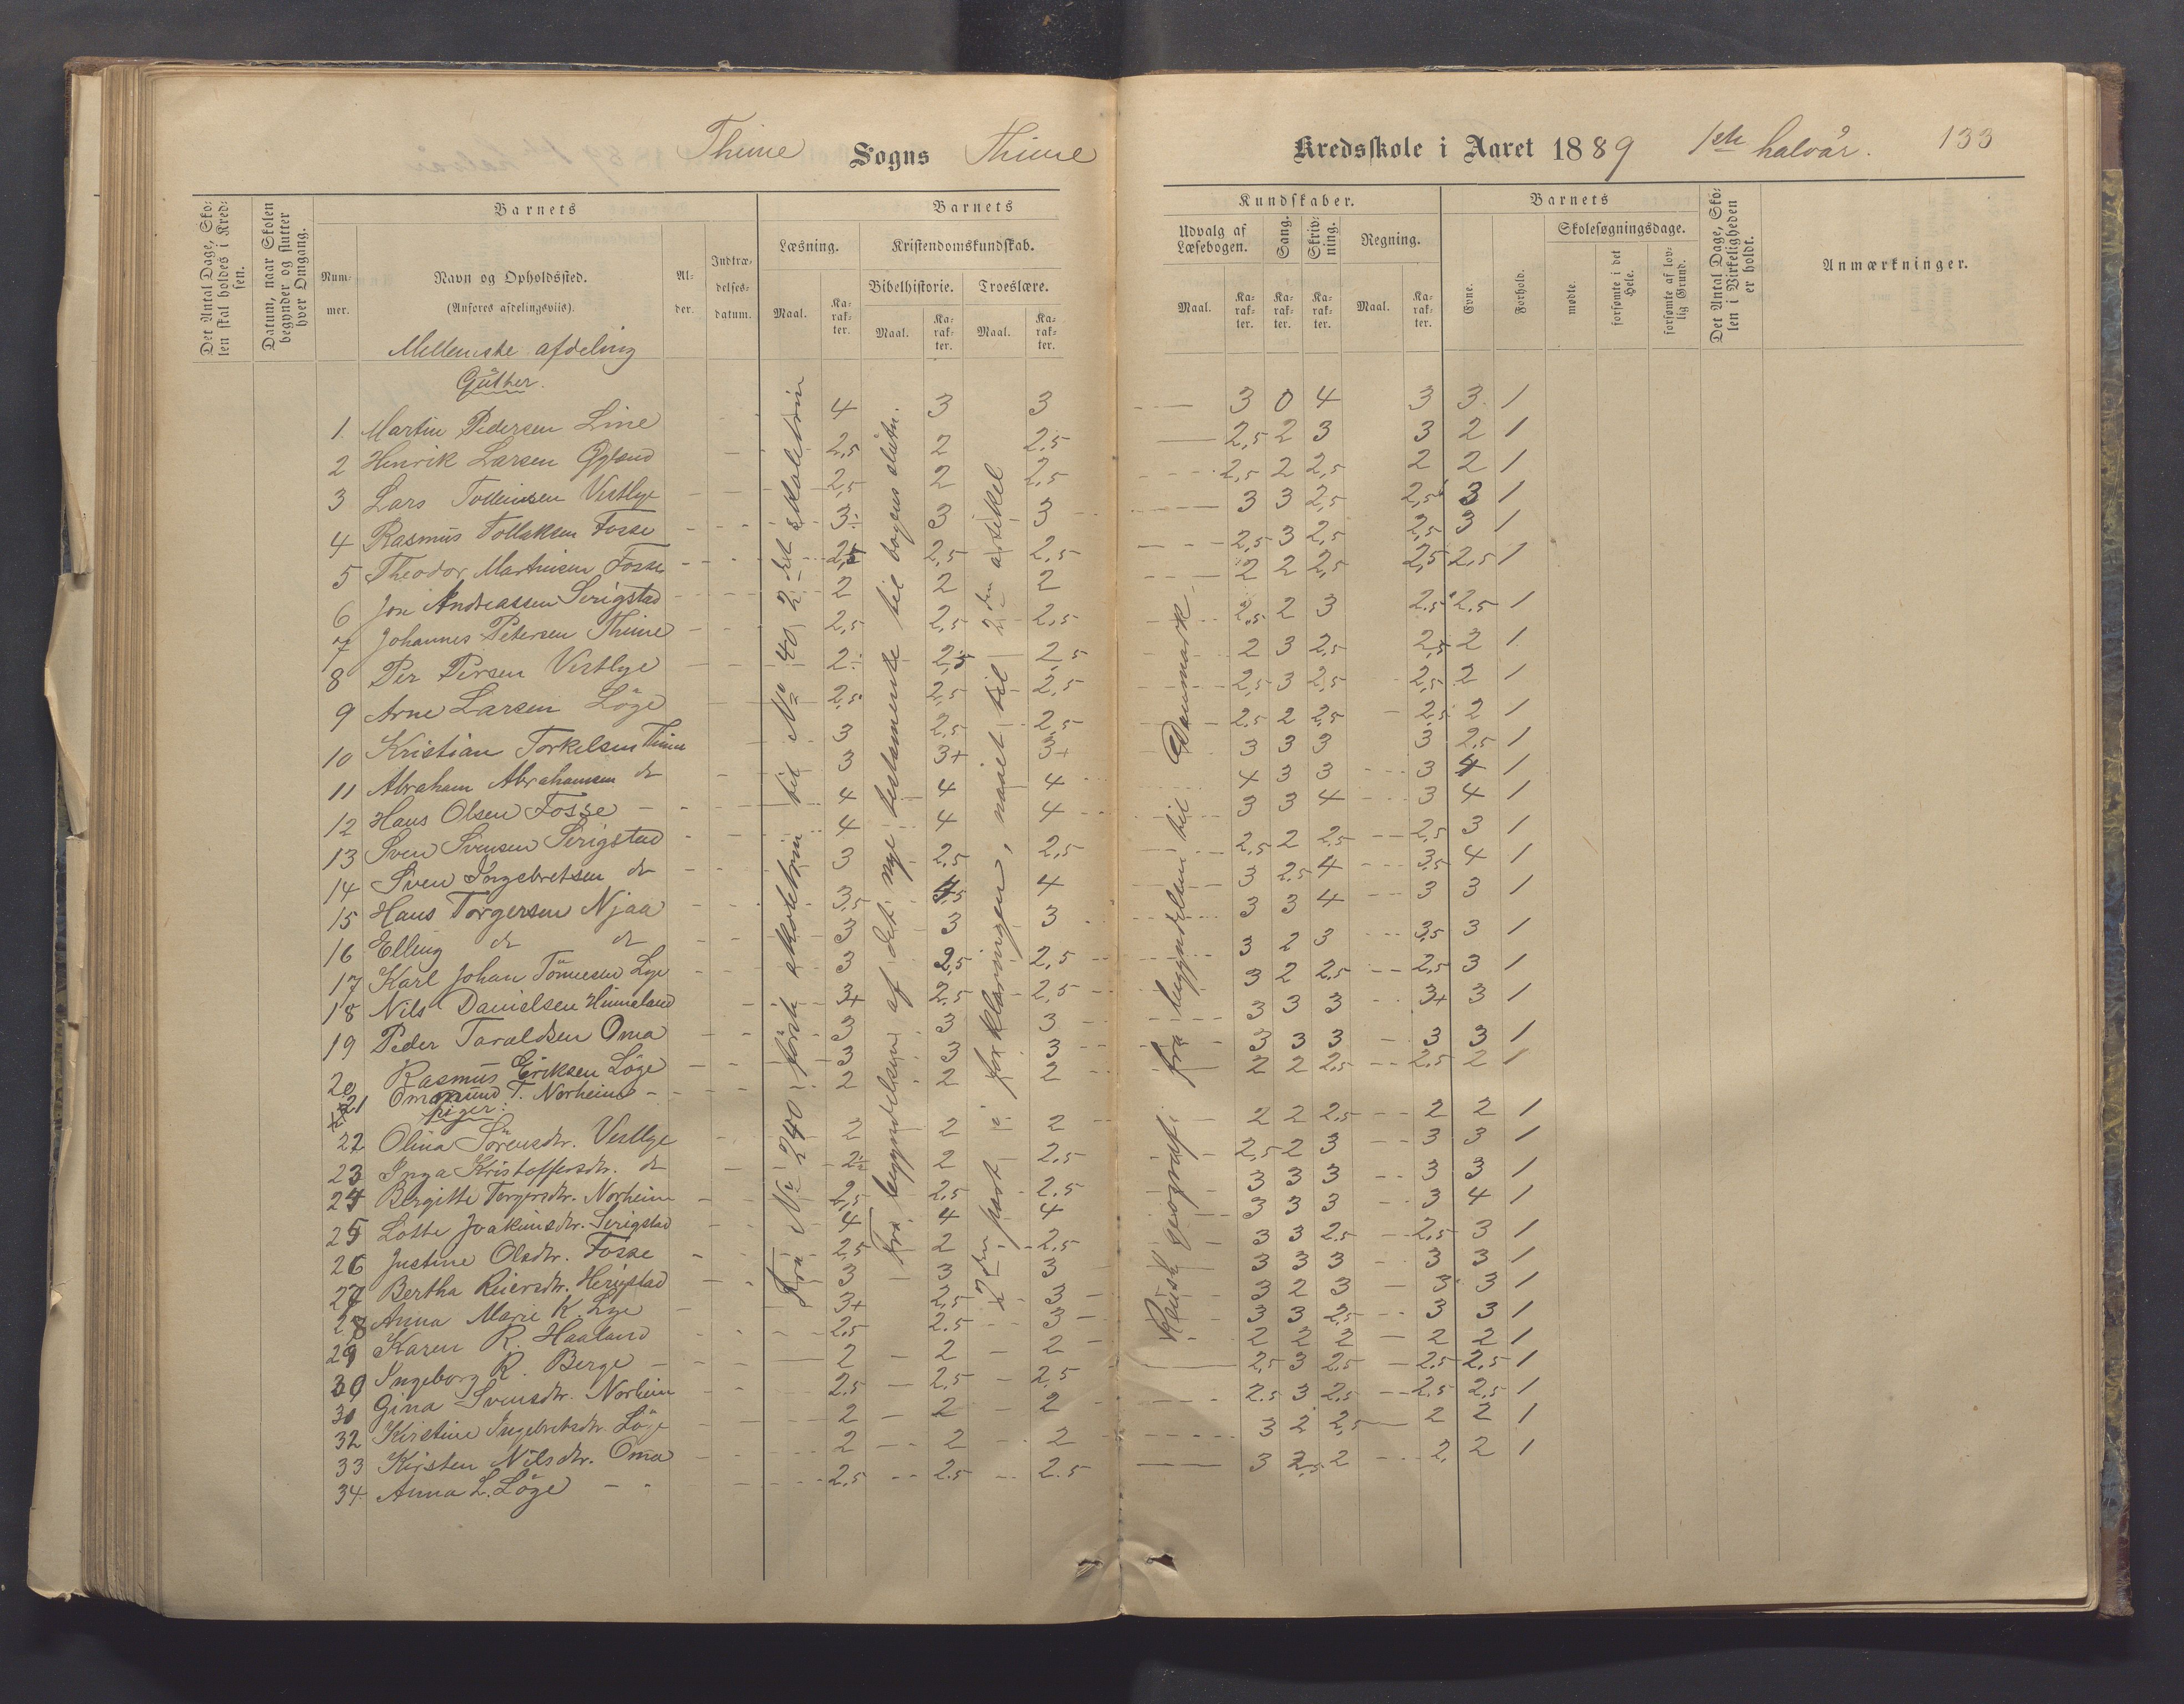 Thime Sogns Thime Kredsskole i Aaret 1889 1ste halvår. 133
Det Antal Dage, Skolen skal holdes i Kredsen.
Datum, naar Skolen begynder og slutter hver Omgang.
Barnets
Nummer.
Navn og Opholdssted.
(Anføres afdelingsviis).
Alder.
Indtrædelsesdatum.
Barnets
Læsning.
Kristendomskundskab.
Bibelhistorie.
Troeslære.
Maal.
Karakter.
Maal.
Karakter.
Maal.
Karakter.
Kundskaber.
Udvalg af Læsebogen.
Sang.
Skrivning.
Regning.
Maal.
Karakter.
Karakter.
Karakter.
Maal.
Karakter.
Barnets
Evne.
Forhold.
Skolesøgningsdage.
mødte.
forsømte i det Hele.
forsømte af lovlig Grund.
Det Antal Dage, Skolen i Virkeligheden er holdt.
Anmærkninger.
Mellemste afdeling
Gutter.
1. Martin Pedersen Line 4 3 3 3 0 4 3 3 1
2 Henrik Larsen 2,5 2 2,5 2,5 2 3 3 2 1
3 Lars Tolleivsen Vestlye 2,5 2 2,5 2,5 2 2,5 2 2 1
4 Rasmus Tollaksen Fosse 3 3 3 3 3 2,5 2,5 3 1
5 Theodor Martinsen Fosse 2,5 2,5 2,5 2,5 3 2,5 2,5 3 1
6 Jon Andreassen Serigstad 2 2 2 2 2 2,5 2,5 2,5 1
7 Johannes Petersen Thime 2,5 2,5 2,5 2,5 2 3 2,5 2,5 1
8 Per Persen Vestlye 2 2,5 2,5 2 3 2,5 2,5 2 1
9 Arne Larsen Löge 2,5 2,5 2,5 2,5 3 2,5 2,5 2 1
10 Kristian Torkelsen Thime 3 2,5 2,5 2,5 2 2,5 2,5 2 1
11 Abraham Abrahamsen do 3 3+ 3+ 3 3 3 3 2,5 1
12 Hans Olsen Fosse 4 4 4 4 3 3 3 4 1
13 Sven Svensen Serigstad 4 4 4 3 3 4 3 4 1
14 Sven Ingebretsen do 3 2,5 2,5 2,5 2 2,5 2,5 3 1
15 Hans Torgersen Njaa 3,5 4 3 2,5 4 3,5 4 1
16 Elling do do 3 3 3 3 3 4 3 3 1
17 Karl Johan Tönnesen Lye 3 2,5 2,5 3 2 3 3,5 3 1
18 Nils Danielsen Hinnaland 3+ 2,5 2,5 3 2 2,5 2,5 3 1
19 Peder Taraldsen Oma 3 3 3 3 3 3 3+ 3 1
20 Rasmus Eriksen Löge 3 3 3 3 3 3 3 3 1
21 Ommund T. Norheim 2 2 2 2 2 2,5 2,5 2 1
piger:
22 Olina Sörensdtr. Vestlye 2 2 2 2 2 2,5 2 2 1
23 Inga Kristoffersdtr. do 2 2 2.5 2,5 2 3 3 3 1
24 Bergitte Torgersdtr. Norheim 2,5 2,5 2.5 3 3 3 3 3 1
25 Lotte Joakimsdtr. Serigstad 4 4 4 3 3 3 3 4 1
26 Justine Olsdtr. Fosse 2,5 2 2,5 3 3 2.5 2,5 3 1
27 Bertha Reiersdtr. 3 3 3 3 3 3 3 3 1
28 Anna Marie K. Lye 3+ 2,5 3 3 2 3 3 3 1
29 Karen R. Haaland 2,5 2.5 3 3 3 2,5 3 3 1
30 Ingeborg R. Berge 2 2 2 2 2 2 2 2 1
31 Gina Svensdtr. Norheim 2.5 2.5 2.5 2,5 3 2.5 2.5 2,5 1
32 Kirstine Ingebretsdtr. Löge 2 2 2 2.5 3 2,5 2.5 2,5 1
33 Kirsten Nilsdtr. Oma 2 2 2 3 2 2,5 2 2 1
34 Anna L. Löge 2,5 2.5 2.5 3 2,5 2 2 2 1
Fra No 240 förste skoletrin til No 40 2det skoletrin
Fra begyndelsen af det nye testamente til bogens slutn.
2den part i forklaringen, naaet til 2den artikel
Fysisk geografi: fra begyndelsen til Danmark.